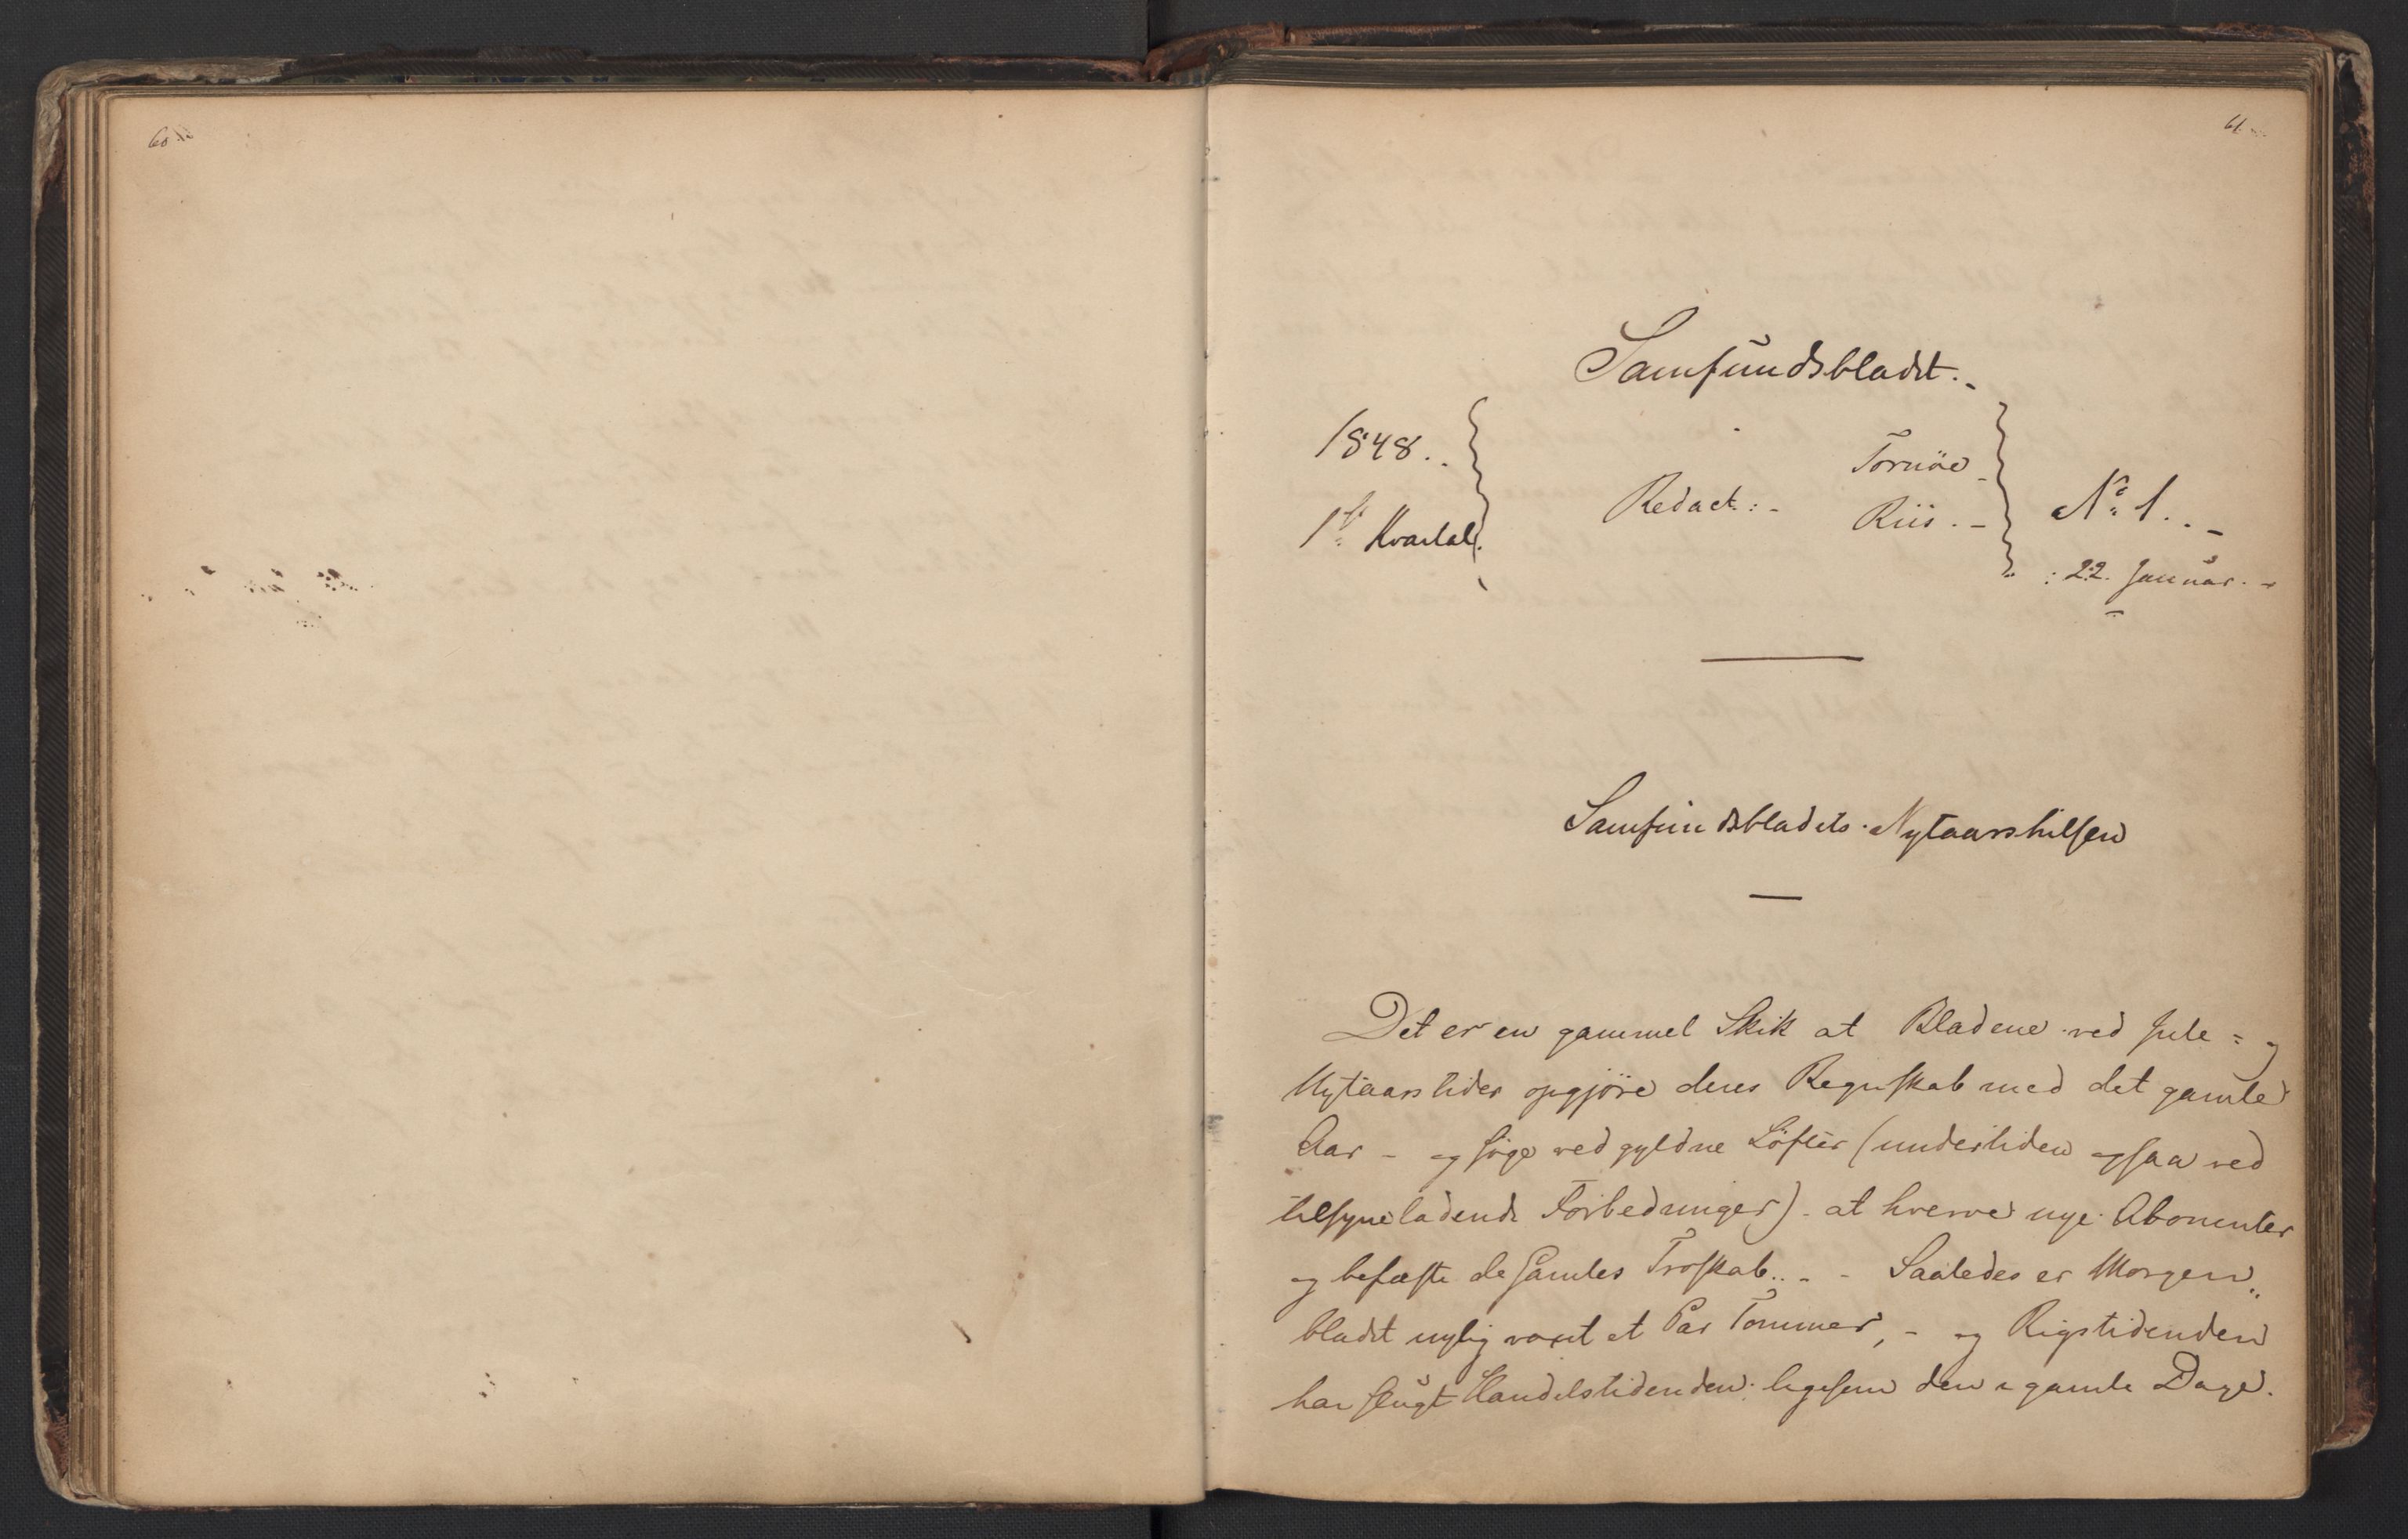 60
61
Samfundsbladet.
1848.
Tornöe
Redact:
Riis.
No 1.
1ste Kvartal.
22. Januar.
Samfundsbladets Nytaarshilsen
Det er en gammel Skik at Bladene ved Jule= og
Nytaarstider opgjöre deres Regnskab med det gamle
Aar – og söge ved gyldne Löfter (undertiden ogsaa ved
tilsyneladende Forbedringer) – at hverve nye Abonenter
og befæste de Gamles Troskab. – Saaledes er Morgen„
bladet nylig voxet et Par Tommer, – og Rigstidenden
har slugt Handelstidenden ligesom den i gamle Dage.